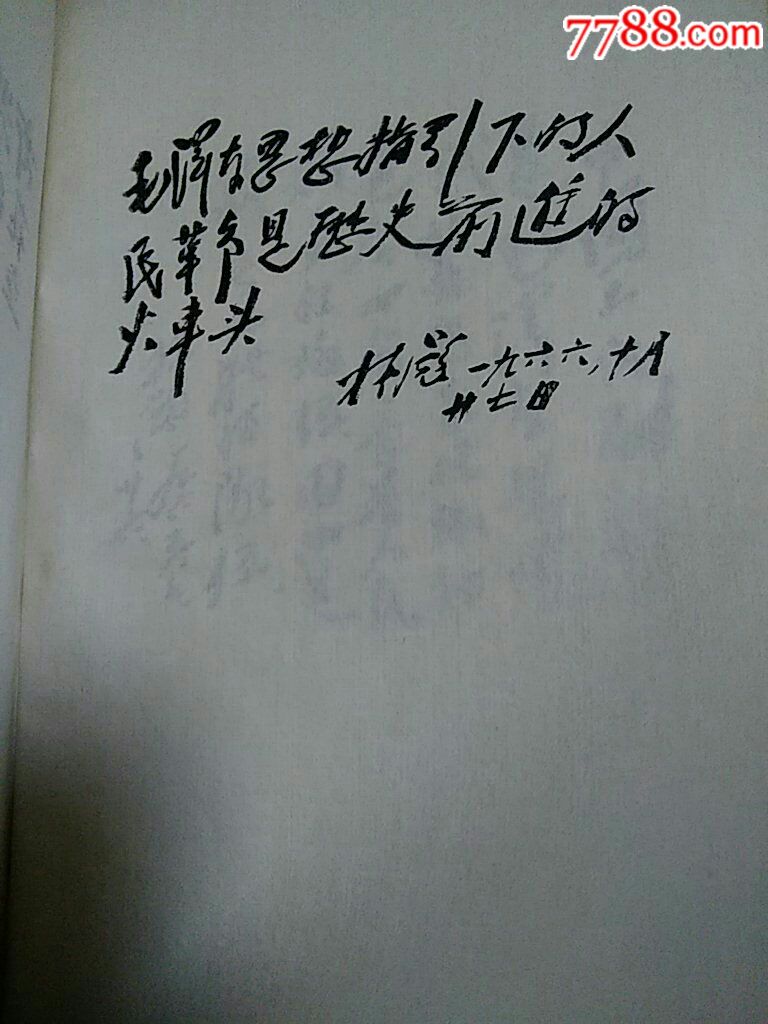 7788.com
毛泽东思想指引下的人
民革命是歷史前進的
火車头
林彪 一九六六、十月
廿七日